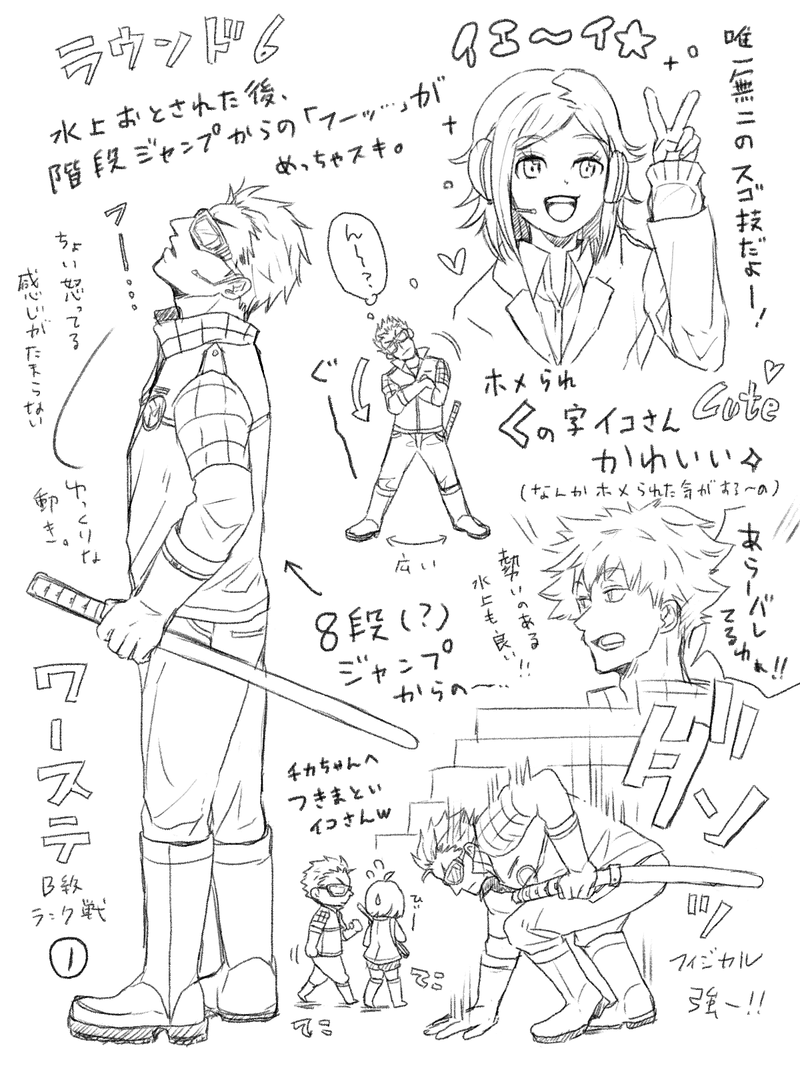 ラウンド6
水上おとされた後、
階段ジャンプからの「フーッ…」が
めっちゃスキ。
フー…
ちょい怒ってる
感じがたまらない
ゆっくりな
動き。
イエ〜イ☆
唯一無二のスゴ技だよー!
ん〜?
ぐーっ
広い
ホメられ
くの字イコさん
かわいい✧
Cute♡
(なんかホメられた気がする〜の)
あらーバレ
てるわぁ!!
勢いのある
水上も良い!!
8段(?)
ジャンプ
からの〜…
ワーステ
B級
ランク戦
①
チカちゃんへ
つきまとい
イコさんw
ひぃー
てこ
てこ
ダンッ
ッ
フィジカル
強ー!!